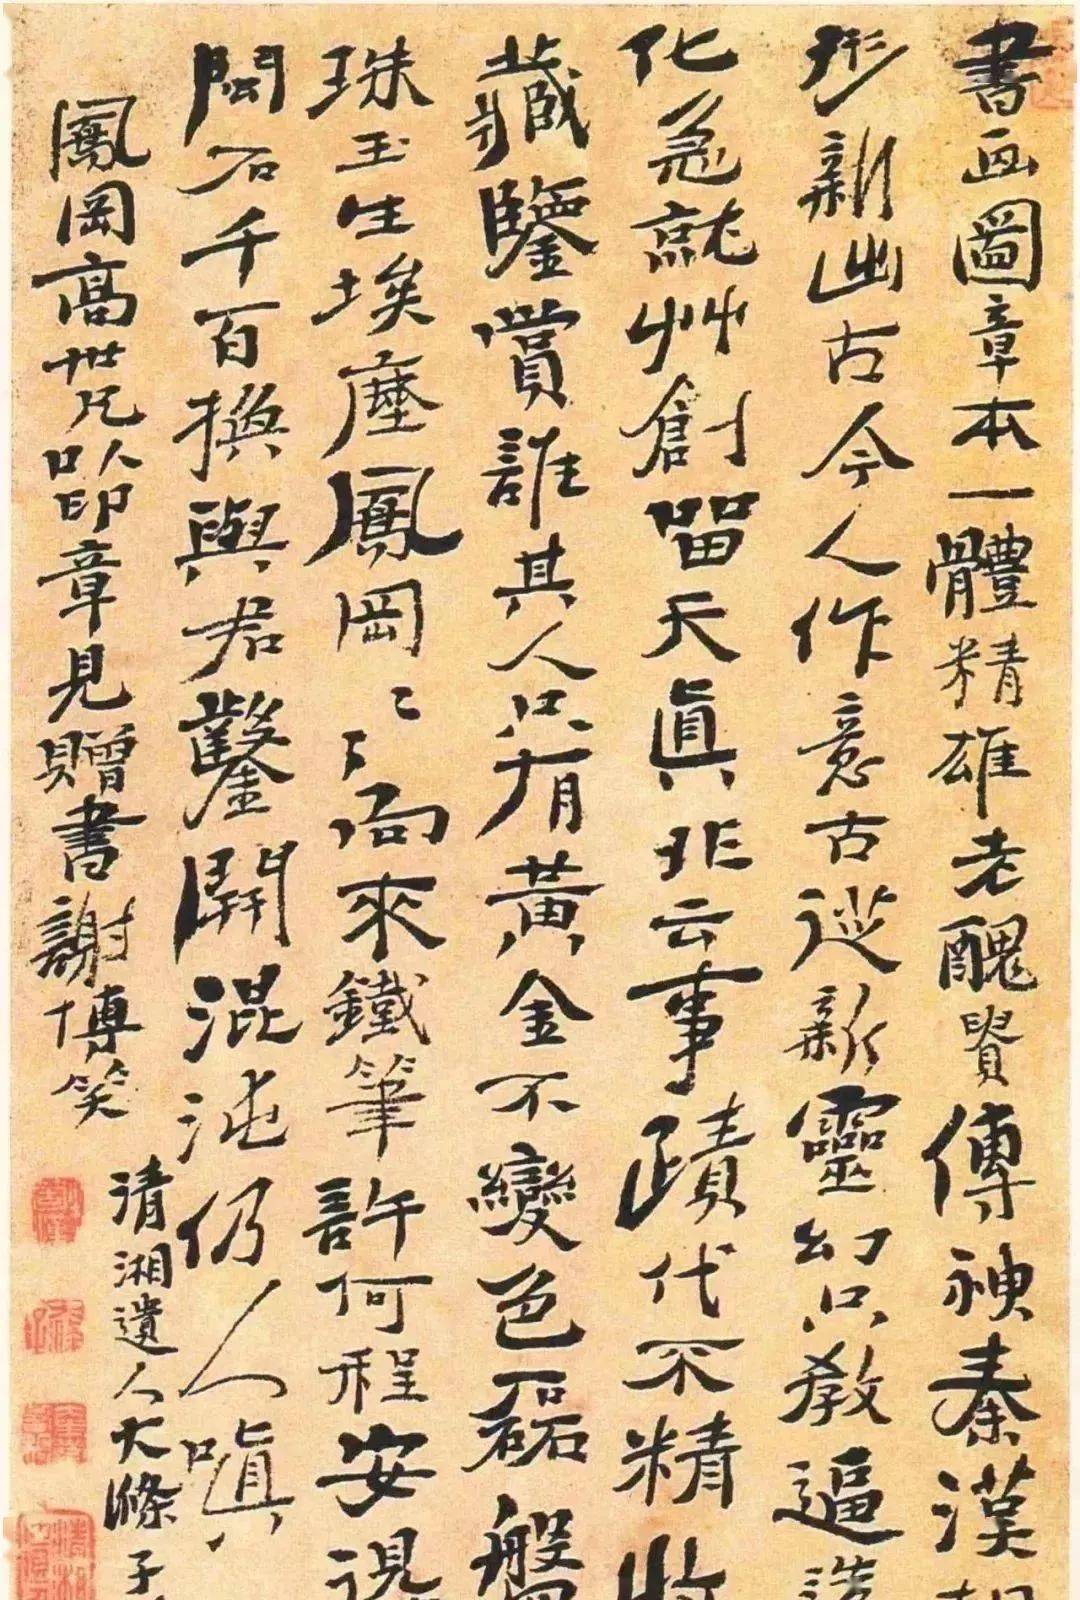 書画圖章本一體精雄老醜貴傳神秦漢
形新出古今人作意古從新靈幻只教逼造
化急就艸創留天眞非云事蹟代不精收
藏鑒賞誰其人只有黃金不變色磊般
珠玉生埃塵鳳岡〻〻向來鐵筆許何程安
閩石千百換與君鑿開混沌仍人嗔
鳳岡高世兄以印章見贈書謝博笑
清湘遺人大滌子